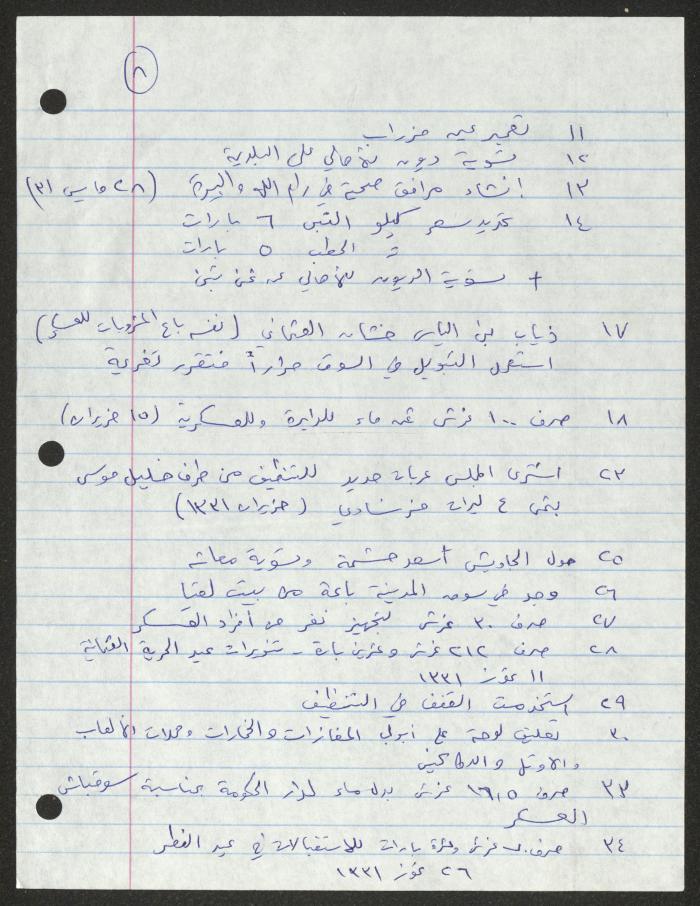 ٨
١١ تعمير عين مزراب
١٢ تسوية ديون الأهالي على البلدية
١٣ انشاء مرافق صحية في رام الله والبيرة (٢٨ مايس ٣١)
١٤ تحديد سعر كيلو التبن ٦ بارات
" الحطب ٥ بارات
+ تسوية الديون للأهالي عن ثمن تبن
١٧ ذياب بن الياس العثماني (نفسه باع المشروبات للعسكر)
استعمل التبويل في السوق مراراً فتقرر تغريمه
١٨ صرف ١٠٠ غرش ثمن ماء للدايرة وللعسكرية (١٥ حزيران)
٢٣ اشترى المجلس عربات جديد للتنظيف من طرف خليل موسى
بثمن ٤ ليرات فرنساوي (حزيران ١٣٣١)
٢٥ حول الجاويش أسعد وتسوية معاشه
٢٦ وجد في سوق المدينة باعة من بيت لقيا
٢٧ صرف ٣٠ غرش لتجهيز نفر من أفراد العسكر
٢٨ صرف ٢١٢ غرش وعشرين بارة - تنويرات عيد الحرية العثمانية
١١ تموز ١٣٣١
٢٩ استخدمت القفف في التنظيف
٣٠ تعليق لوحة على أبواب المغازات والخمارات ومحلات الألعاب
والاوتيل والدكاكين
٣٣ صرف ١٦،٥ غرش بدل ماء لدار الحكومة بمناسبة سوقيات
العسكر
٣٤ صرف غرش وعشرة بارات للاستقبالات في عيد الفطر
٢٦ تموز ١٣٣١